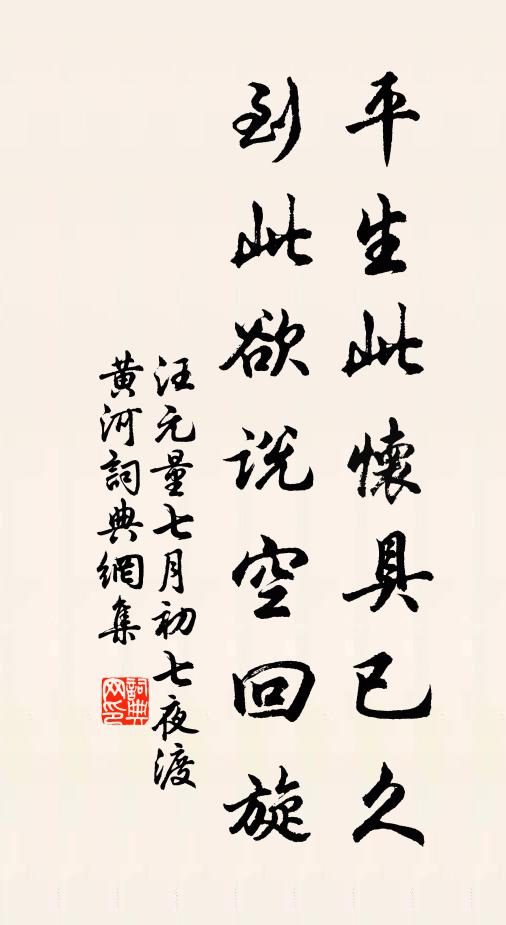 平生此懷具已久
到此欲说空回旋
汪元量七月初七夜渡
黄河詞典網集
詞典
网印